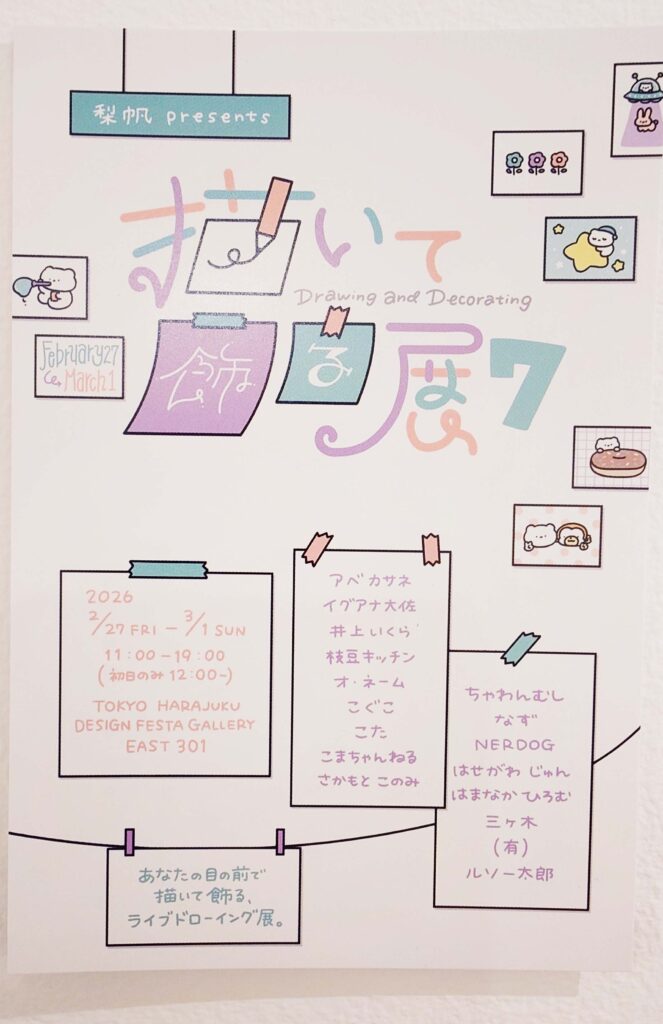 梨帆 presents
描いて
Drawing and Decorating
飾る展7
February27
March1
2026
2/27 FRI － 3/1 SUN
11:00－19:00
(初日のみ 12:00~)
TOKYO HARAJUKU
DESIGN FESTA GALLERY
EAST 301
アベカサネ
イグアナ大佐
井上いくら
枝豆キッチン
オ・ネーム
こぐこ
こた
こまちゃんねる
さかもと このみ
ちゃわんむし
なず
NERDOG
はせがわ じゅん
はまなか ひろむ
三ヶ木
(有)
ルソー太郎
あなたの目の前で
描いて飾る、
ライブドローイング展。